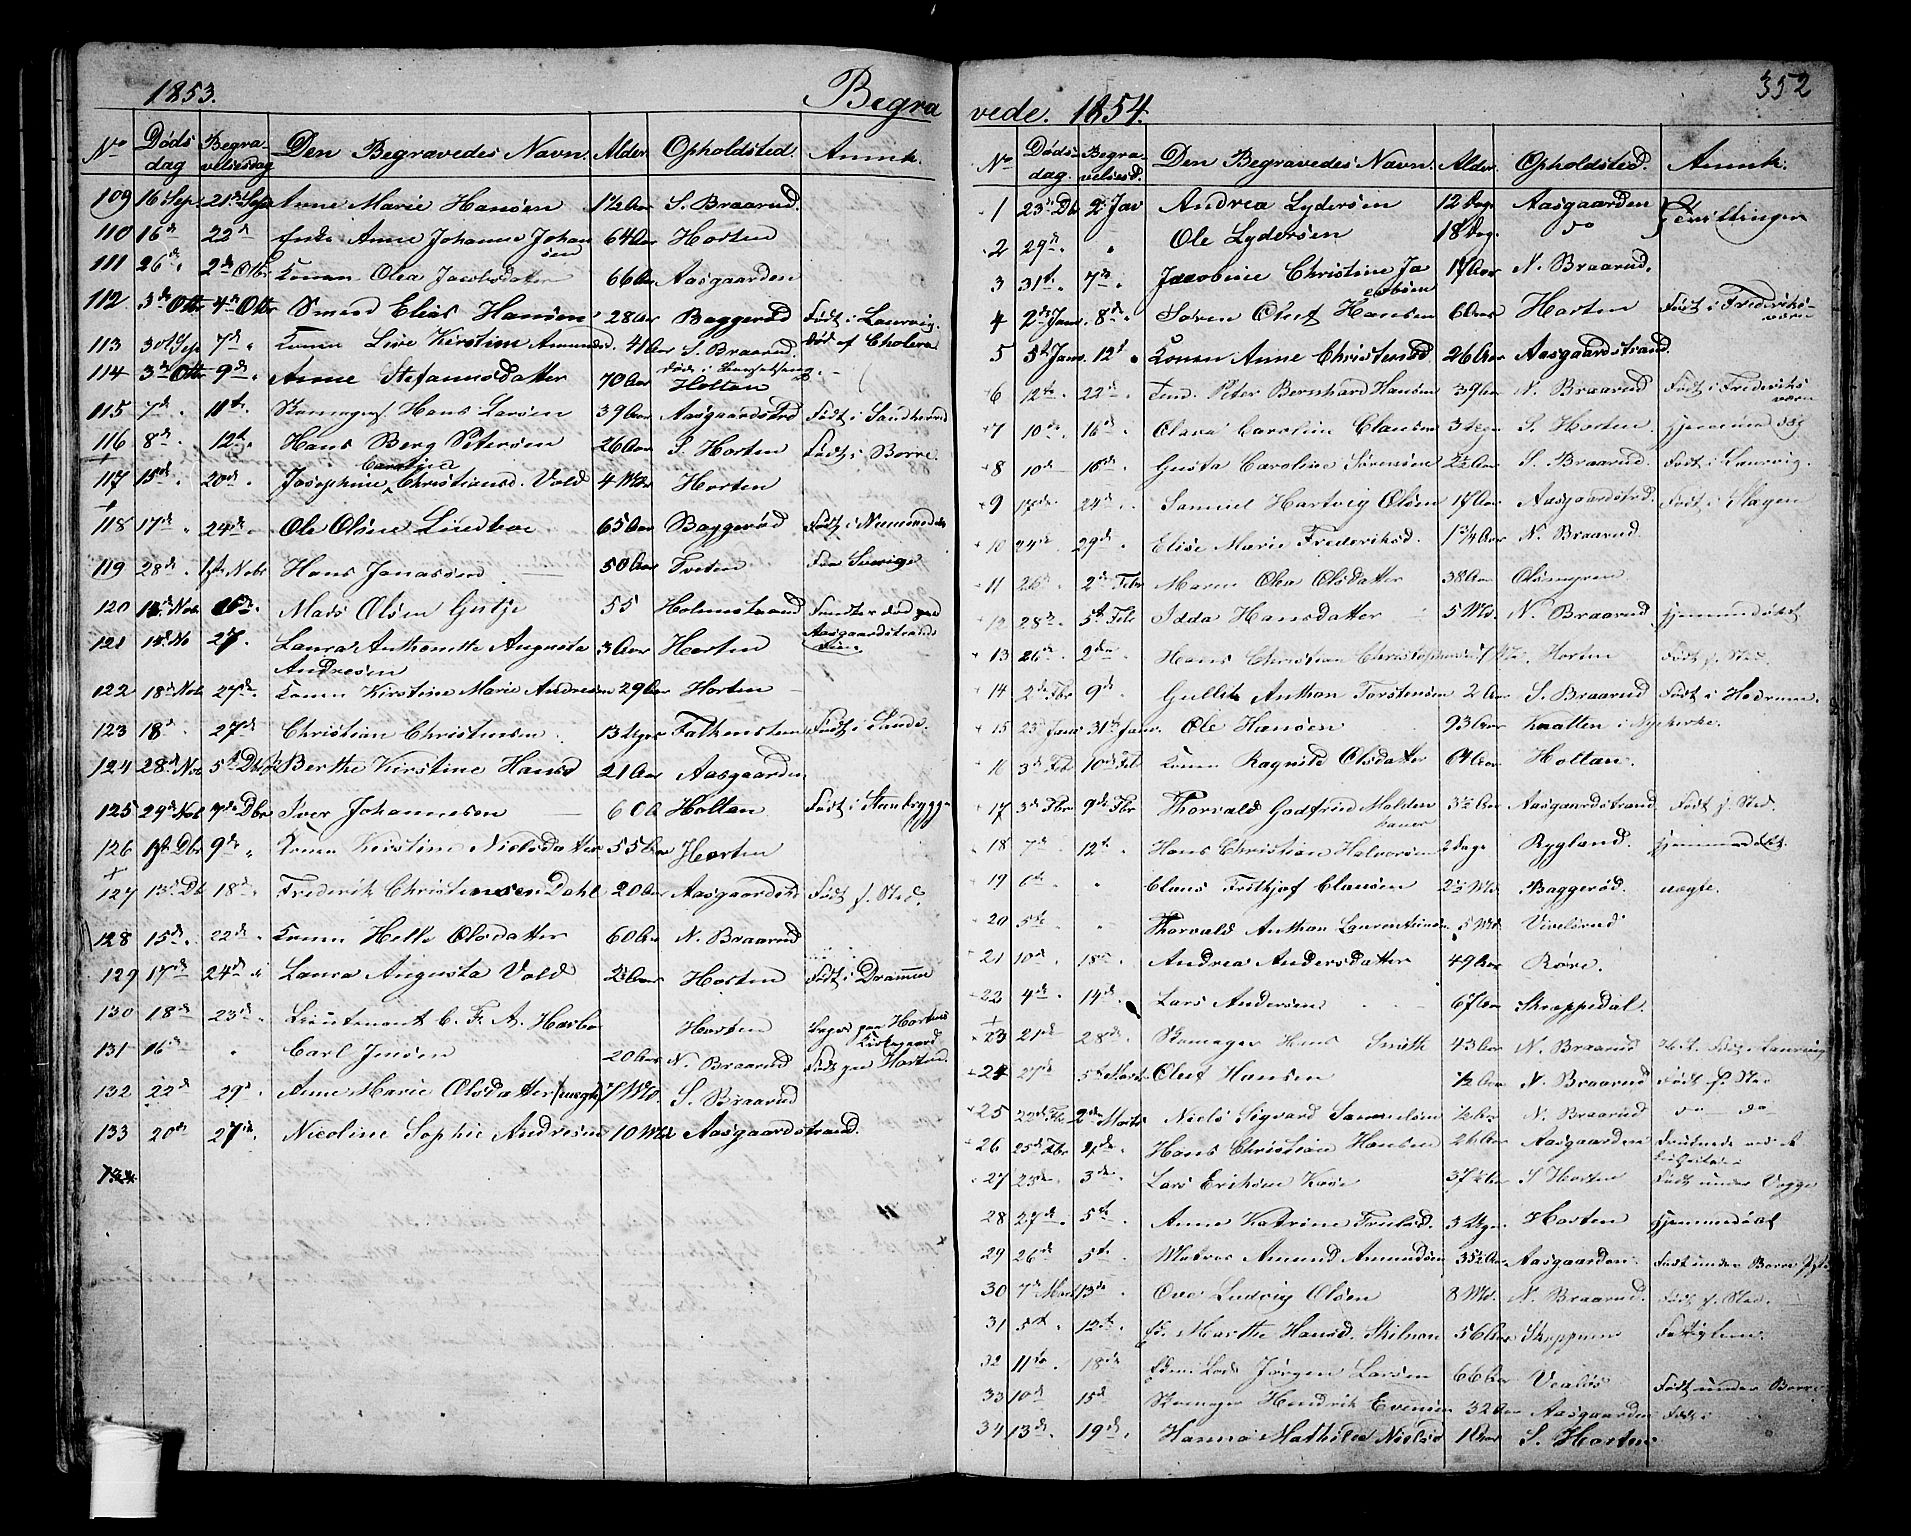 1853.
Begra
No Døds dag Begra velsesdag Den Begravedes Navn. Alder. Opholdsted. Anmk.
109 16 Sep. 21d Sep Anne Marie Hansen 1½ Aar S. Braarud.
110 16d 22d Enke Anne Johanne Johan 64 Aar Horten
sen
111 26d „ 2d Otbr Konen Olea Jacobsdatter 66 Aar Aasgaarden
112 3d Otbr 4d Otbr Smed Elias Hansen 28 Aar Baggerød Født i Laurvig.
113 30 Sep 7d „ Konen Live Kirstine Amunds. 41 Aar S. Braarud. Død af Cholera
114 3d Otbr 9d „ Anne Stefansdatter 70 Aar Holtan
115 7d „ 11t. Skomagers. Hans Larsen 39 Aar Aasgaardstrd Født i Sandherred
116 8d „ 12t „ Hans Berg Petersen 26 Aar S. Horten Født i Borre.
Caroline
117 15d „ 20d „ Josephine Christiansd. Vold 4 Mdr Horten
118 17d „ 24d „ Ole Olsen Lindboe 65 Aar Baggerød
119 28d „ 1st Nobr Hans Jonassen 50 Aar Tveten Fra Sverige
120 Mads Olsen Gutje 55 Holmestrand Funden død ved
Aasgaardstrand
121 15d No 27. Laura Anthonette Augusta 3 Aar Horten
Andresen
122 18d Nob 27d. Konen Kirstine Marie Andresen 29 Aar Horten
123 18d „ 27d Christian Christensen 13 Uger Falkensteen Født i Lunde.
124 28d Nob 5t Dbr Berthe Kirstine Hansd 21 Aar Aasgaarden
125 29d Nob 7d Dbr Iver Johannesen 60 A Holtan Født i
126 1st Dbr 9d „ Konen Kirstine Nielsdatter 55 Aar Horten
127 13d Db 18d „ Frederik Christensen Dahl 20 Aar Aasgaardstd Født p. Sted.
128 15d „ 22d „ Konen Helle Olsdatter 60 Aar N. Braarud
129 17d 24d „ Laura Augusta Vold 2 Aar Horten Født i Drammen
130 18d 23d „ Lieutenant C. F. A. Harbo Horten paa Hortens
Kirkegaard
131 16d „ Carl Jensen 20 Aar N. Braarud Født paa Horten
132 22d 29d Anne Marie Olsdatter (uægte) 7 Md. S. Braarud
133 20d 27d. Nicoline Sophie Andresen 10 Mdr Aasgaardstrand.
134
352
vede. 1854.
No Døds dag. Begra velsesd. Den Begravedes Navn. Alder. Opholdsted. Anmk.
1 23d Db 2d Jan Andrea Lydersen 12 Dage Aasgaarden } Tvillinger
2 29d „ „ Ole Lydersen 18 Dag. do
3 31t „ 7d „ Jacobine Christine Ja 17 Aar N. Braarud.
cobsen
4 2d Jan. 8d „ Søren Oluf Hansen 6 Aar Horten Født i Frederiks-
værn
5 5t Jan. 12t „ Konen Anne Christensd. 26 Aar Aasgaardstrand.
6 12t „ 22d „ Peter Bernhard Hansen 39 Aar N. Braarud Født i Frederiks
værn
7 10d „ 16d „ Olava Caroline Clausen 3 Uger S. Horten hjemmedøbt
8 10d 16d „ Gusta Caroline Sørensen 2½ Aar S. Braarud. Født i Laurvig.
9 17d „ 24d „ Samuel Hartvig Olsen 17 Aar Aasgaardstrd. Født i Slagen
10 24d 29d „ Elise Marie Frederiksd. 1¾ Aar N. Braarud.
11 26d 2d Febr Maren Olea Olsdatter 38 Aar Olsmyren.
12 28d „ 5t Feb Idda Hansdatter 5 Md. N. Braarud hjemmedøbt
13 26d „ 2d „ Hans Christian Christophersen Horten Født p. Sted.
14 2d Fbr 9d „ Gullik Anthon Torstensen 2 Aar S. Braarud Født i Hedrum.
15 23 Jan 31t Jan. Ole Hansen 93 Aar Knatten i Nykirke.
16 3d Feb 10d Feb Konen Ragnild Olsdatter 64 Aar Holtan.
17 3d Fbr 9d Fbr Thorvald Godfred Molden 3½ Aar Aasgaardstrand Født p. Sted.
hauer
18 7d „ 12t „ Hans Christian Halvorsen 2 Dage Rygland. hjemmedøbt
19 6t „ „ Claus Frithjof Clausen 2½ Md. Baggerød. uægte.
20 5t „ Thorvald Anthon Laurentiusen 5 Md Vivelsrud
21 10d „ 18d „ Andrea Andersdatter 49 Aar Røre.
22 4d „ 14d „ Lars Andersen 67 Aar Skreppedal.
23 21d 28d „ Skomager Hans Smith 43 Aar N. Braarud
24 27d „ Oluf Hansen ½ Aar N. Braarud Født p. Sted
25 22d Feb 2d Marts Niels Sigvard Samuelsen ½ Aar N. Braarud do do
26 25d Fbr Hans Christian Hansen 26 Aar Aasgaarden
27 23d „ 3d „ Lars Eriksen 37 Aar S Horten Født under
28 27d „ 5t „ Anne Katrine 3 Uger Horten hjemmedøbt
29 26d 5t „ Matros Amund Amundsen 35½ Aar Aasgaarden. Født under Borre
30 7d Mart 13d Ove Ludvig Olsen 8 Md. N. Braarud. Født p. Sted.
31 5t „ 12t „ Marthe Hansd. 56 Aar Skoppum Fattiglem.
32 11d 18d Jørgen Larsen 66 Aar Vealøs
33 10d 15d Skomager Hendrik Evensen 32 Aar Aasgaarden Født under Borre
34 13d „ 19d „ Hanna Mathilde Nielsd 1 Aar S. Horten